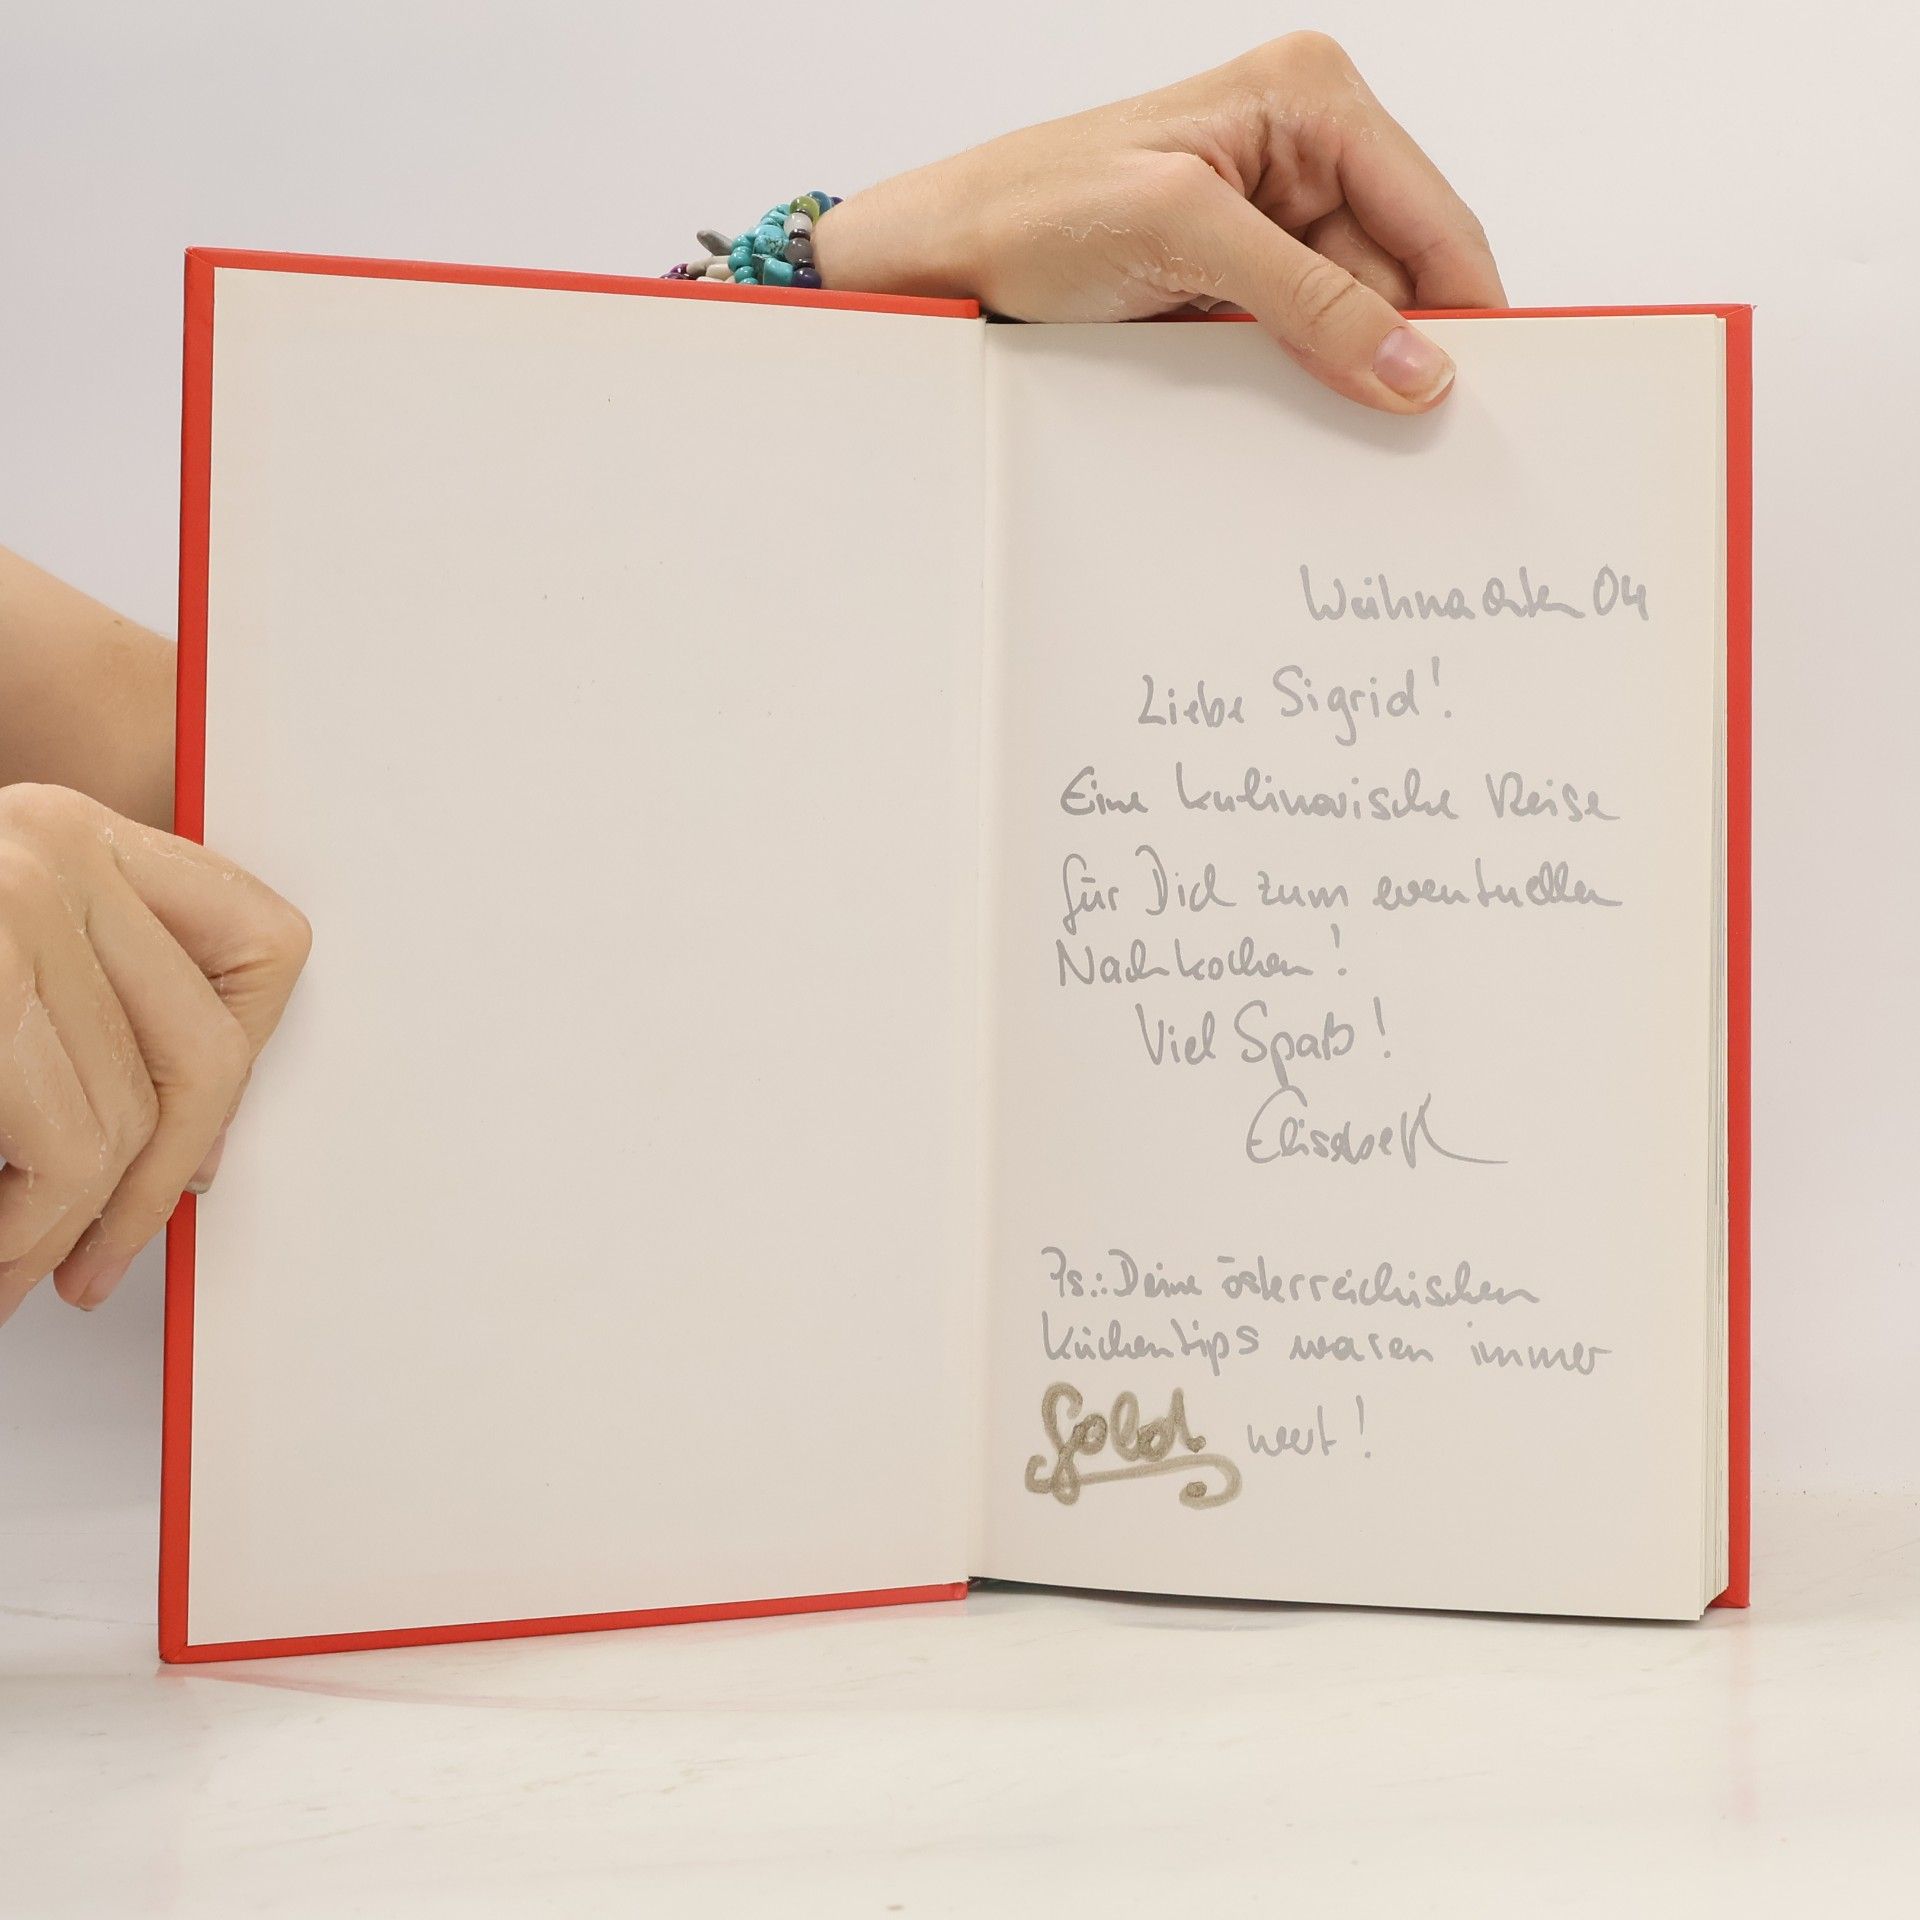 Weihnachten 04
Liebe Sigrid!
Eine kulinarische Reise
für Dich zum eventuellen
Nachkochen!
Viel Spaß!
Elisabeth
Ps.: Deine österreichischen
Küchentips waren immer
Gold wert!